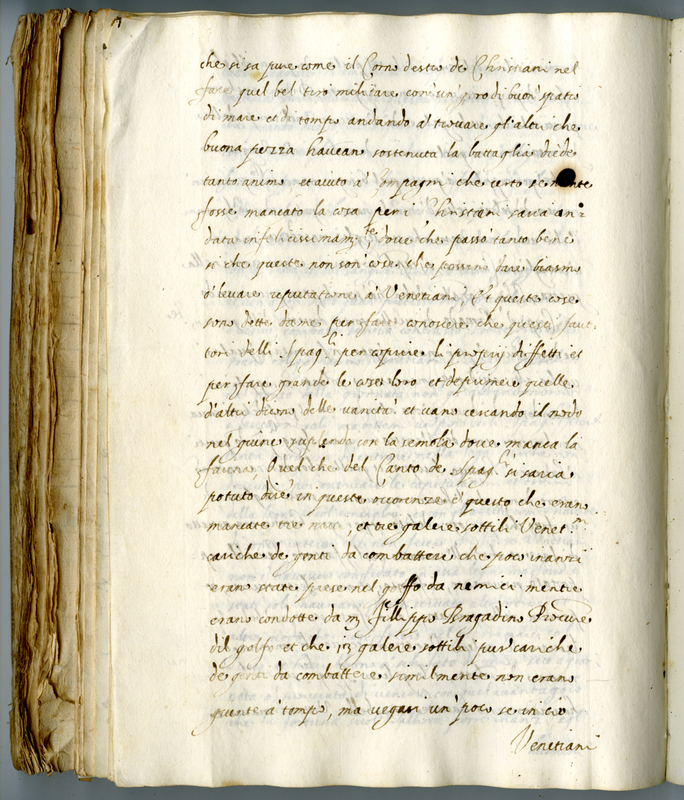 che si sa pure come il Corno destro de Christiani nel
fare quel bel tiro militare con un giro di buon spatio
di mare et di tempo andando a trouare gl'altri che
buona pezza haueano sostenuta la battaglia diede
tanto animo et aiuto a' Compagni che certo se
fosse mancato la cosa per i Christiani saria an:
data infelicissimam.te doue che passò tanto bene
si che queste non son' cose che possino dare biasmo
ò leuare reputatione a' Venetiani, Et queste cose
sono dette da me per fare conoscere che questi faut
tori delli Spag.li per coprire li proprij diffetti et
per fare grande le cose loro et deprimere quelle
d'altri dicono delle vanità et uano cercando il nodo
nel con la semola doue manca la
farina, Quel che del Canto de Spag.li si saria
potuto dire in queste occorenze è questo che erano
mancate tre naui, et tre galere sottili Venet.ne
cariche de genti da combattere che poco inanzi
erano state prese nel golfo da nemici mentre
erano condotte da m. Filippo Bragadino Proeure
dil golfo et che 13 galere sottili pur cariche
de genti da combattere similmente non erano
giunte a tempo, ma uegasi un' poco se in ciò
Venetiani